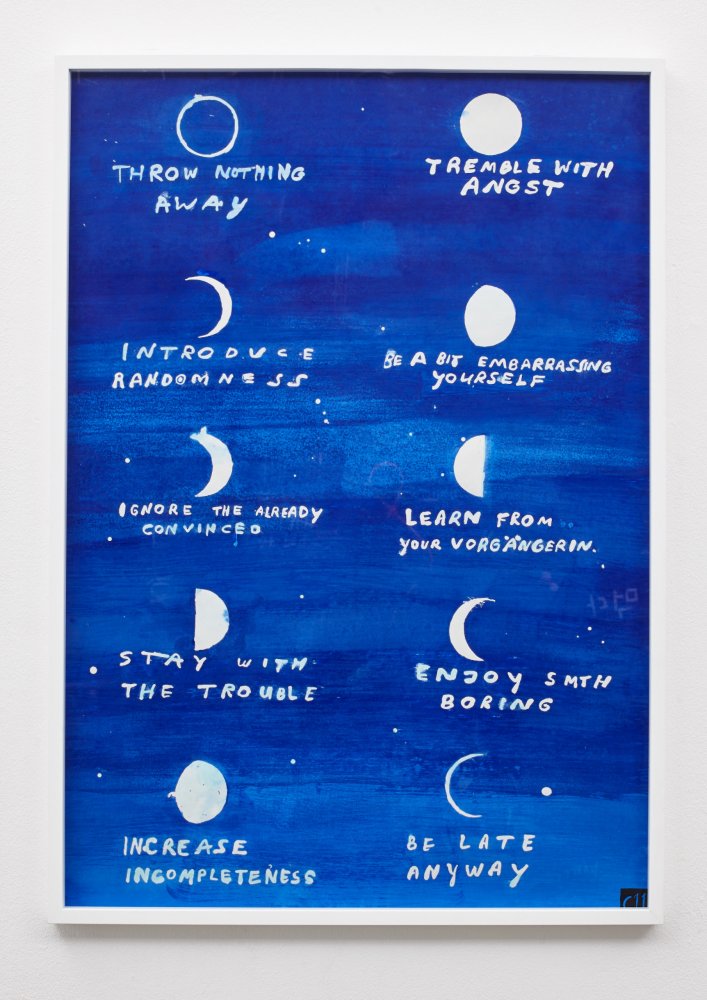 THROW NOTHING
AWAY
INTRODUCE
RANDOMNESS
IGNORE THE ALREADY
CONVINCED
STAY WITH
THE TROUBLE
INCREASE
INCOMPLETENESS
TREMBLE WITH
ANGST
BE A BIT EMBARRASSING
YOURSELF
LEARN FROM
YOUR VORGÄNGERIN.
ENJOY SMTH
BORING
BE LATE
ANYWAY